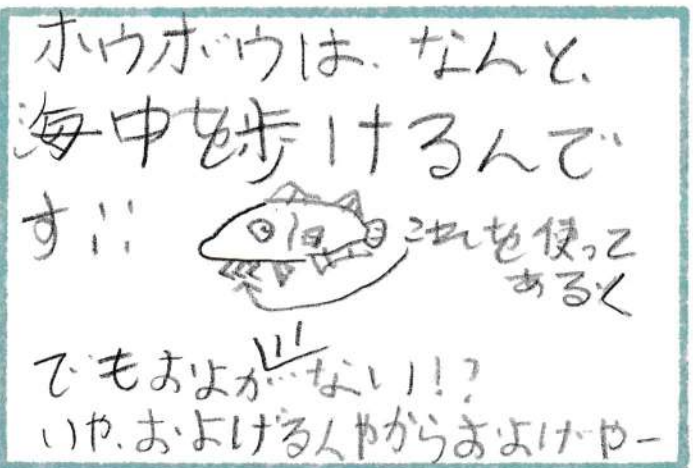 ホウボウは、なんと、
海中を歩けるんで
す!!
これを使って
あるく
でもおよがない!?
いや、およげるんやからおよげやー